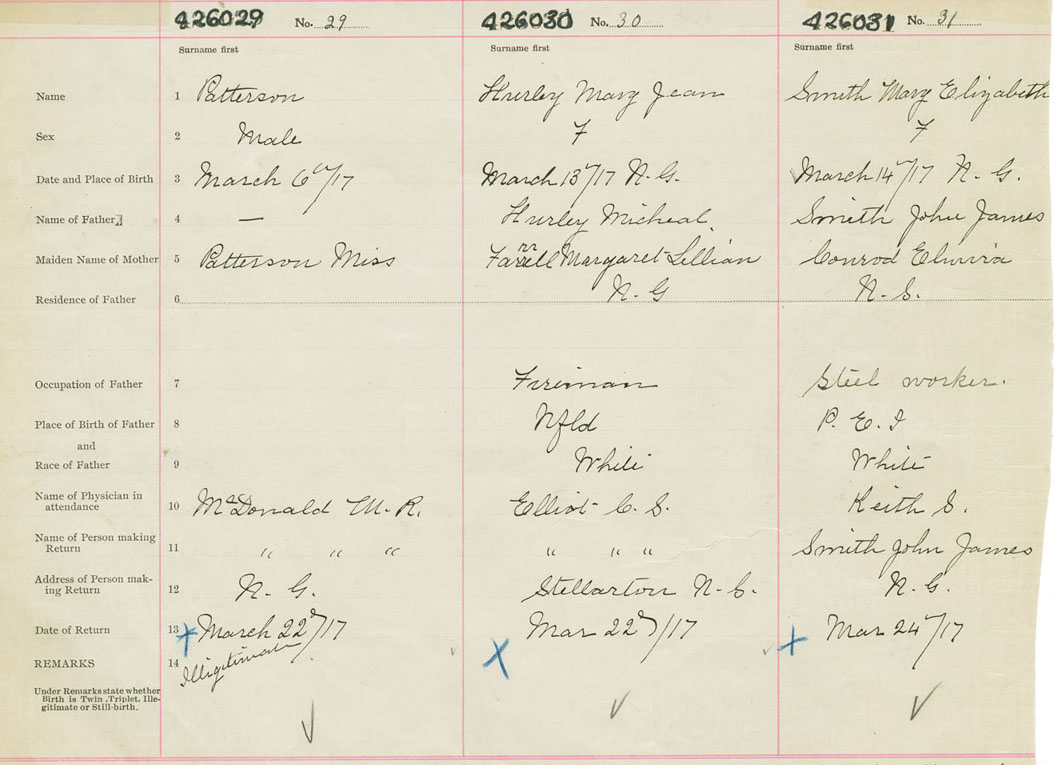 426029 No. 29 426030 No. 30 426031 No. 31
Surname first Surname first Surname first
Name 1 Patterson Hurley Mary Jean Smith Mary Elizabeth
Sex 2 Male F F
Date and Place of Birth 3 March 6th/17 March 13th/17 N. G. March 14th/17 N. G.
Name of Father 4 — Hurley Micheal Smith John James
Maiden Name of Mother 5 Patterson Miss Farrell Margaret Lillian Conrod Elmira
Residence of Father 6 N. G N. S.
Occupation of Father 7 Fireman Steel worker.
Place of Birth of Father 8 Nfld P. E. I
and
Race of Father 9 White White
Name of Physician in
attendance 10 McDonald M. R. Elliot C. S. Keith S.
Name of Person making
Return 11 " " " " " " Smith John James
Address of Person mak-
ing Return 12 N. G. Stellarton N. S. N. G.
Date of Return 13 March 22d/17 Mar 22d/17 Mar 24th/17
REMARKS 14 Illigitimate
Under Remarks state whether
Birth is Twin, Triplet, Ille-
gitimate or Still-birth.